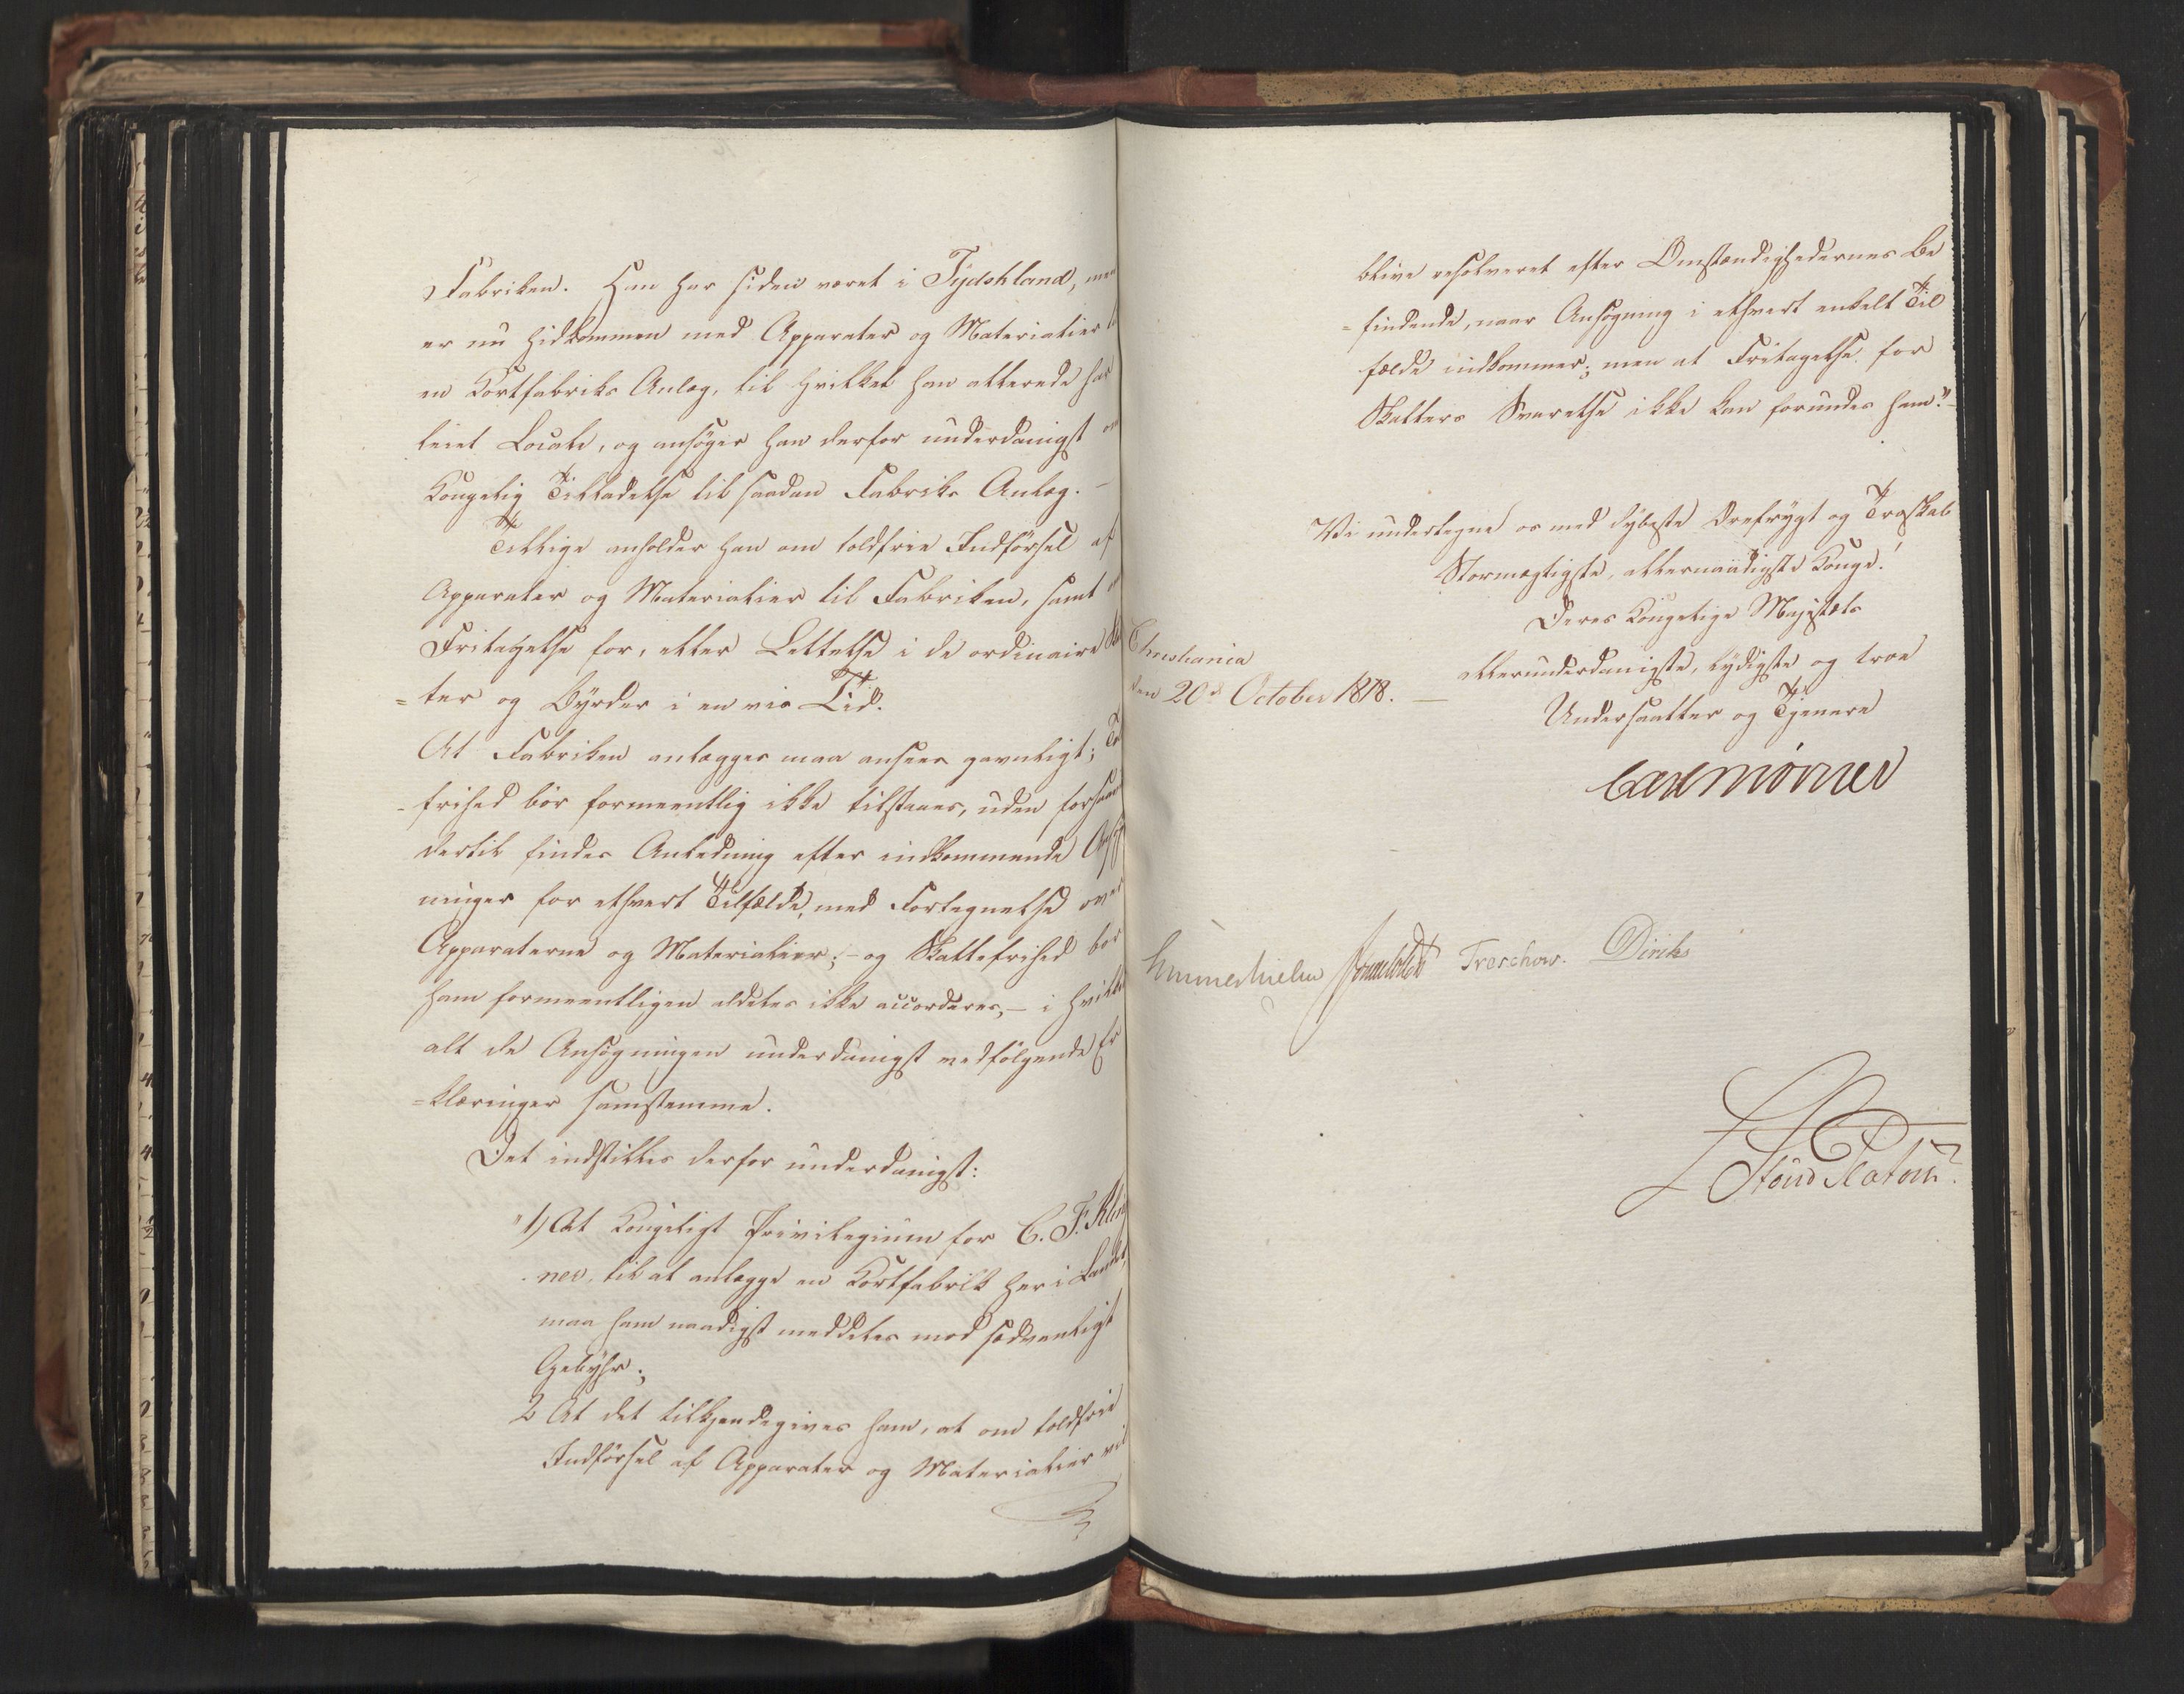 Fabriken. Han har siden været i Tydskland, men
er nu hidkommen med Apparater og Materialier til
en Kortfabriks Anlæg, til hvilket han allerede har
leiet Locale, og ansøger han derfor underdanigst om
Kongelig Tilladelse til saadan Fabriks Anlæg. –
Tillige anholder han om toldfrie Indførsel af
Apparater og Materialier til Fabriken, samt om
Fritagelse for, eller Lettelse i de ordinaire
=ter og Byrder i en vis Tid.
At Fabriken anlægges maa ansees gavnligt;
-frihed bør formeentlig ikke tilstaaes, uden forsaavidt
dertil findes Anledning efter indkommende Ansøg
ninger for ethvert Tilfælde, med Fortegnelse over
Apparaterne og Materialier; – og Skattefrihed bør
ham formeentligen aldeles ikke accorderes, – i hvilket
alt de Ansøgningen underdanigst medfølgende Er
=klæringer samstemme.
Det indstilles derfor underdanigst:
"1) At Kongeligt Privilegium for C. F. Kling
ner, til at anlægge en Kortfabrik her i Landet,
maa ham naadigst meddeles mod sædvanligt
Gebyhr;
2 At det tilkjendegives ham, at om toldfrie
Indførsel af Apparater og Materialier vil
blive resolveret efter Omstændighedernes Be
=findende, naar Ansøgning i ethvert enkelt Til
fælde indkommer; men at Fritagelse for
Skatters Svarelse ikke kan forundes ham." –
Vi undertegne os med dybeste Ærefrygt og Troskab
Stormægtigste, allernaadigste Konge!
Deres Kongelige Majestæts
Christiania
den 20de October 1818. –
allerunderdanigste, lydigste og troe
Undersaatter og Tjenere
Carl Mörner
Hummerhielm Sommerfeldt Treschow. Diriks